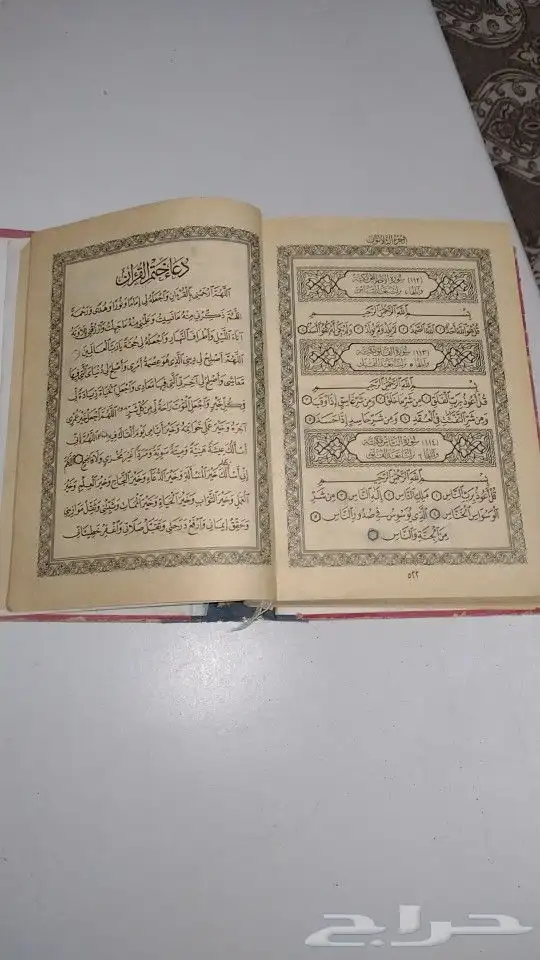 (١١٢) سورة الإخلاص مكية
بِسْمِ اللَّهِ الرَّحْمَنِ الرَّحِيمِ
قُلْ هُوَ اللَّهُ أَحَدٌ ١ اللَّهُ الصَّمَدُ ٢ لَمْ يَلِدْ وَلَمْ يُولَدْ ٣ وَلَمْ يَكُنْ لَهُ كُفُوًا أَحَدٌ ٤
(١١٣) سورة الفلق مكية
بِسْمِ اللَّهِ الرَّحْمَنِ الرَّحِيمِ
قُلْ أَعُوذُ بِرَبِّ الْفَلَقِ ١ مِنْ شَرِّ مَا خَلَقَ ٢ وَمِنْ شَرِّ غَاسِقٍ إِذَا وَقَبَ ٣
وَمِنْ شَرِّ النَّفَّاثَاتِ فِي الْعُقَدِ ٤ وَمِنْ شَرِّ حَاسِدٍ إِذَا حَسَدَ ٥
(١١٤) سورة الناس
بِسْمِ اللَّهِ الرَّحْمَنِ الرَّحِيمِ
قُلْ أَعُوذُ بِرَبِّ النَّاسِ ١ مَلِكِ النَّاسِ ٢ إِلَهِ النَّاسِ ٣ مِنْ شَرِّ
الْوَسْوَاسِ الْخَنَّاسِ ٤ الَّذِي يُوَسْوِسُ فِي صُدُورِ النَّاسِ ٥
مِنَ الْجِنَّةِ وَالنَّاسِ ٦
٥٢٢
دعاء ختم القرآن
اللَّهُمَّ ارْحَمْنِي بِالْقُرْآنِ وَاجْعَلْهُ لِي إِمَامًا وَنُورًا وَهُدًى وَرَحْمَةً
اللَّهُمَّ ذَكِّرْنِي مِنْهُ مَا نَسِيتُ وَعَلِّمْنِي مِنْهُ مَا جَهِلْتُ وَارْزُقْنِي تِلَاوَتَهُ
آنَاءَ اللَّيْلِ وَأَطْرَافَ النَّهَارِ وَاجْعَلْهُ لِي حُجَّةً يَا رَبَّ الْعَالَمِينَ
اللَّهُمَّ أَصْلِحْ لِي دِينِي الَّذِي هُوَ عِصْمَةُ أَمْرِي وَأَصْلِحْ لِي دُنْيَايَ الَّتِي فِيهَا
مَعَاشِي وَأَصْلِحْ لِي آخِرَتِي الَّتِي فِيهَا مَعَادِي وَاجْعَلِ الْحَيَاةَ زِيَادَةً لِي
فِي كُلِّ خَيْرٍ وَاجْعَلِ الْمَوْتَ رَاحَةً لِي مِنْ كُلِّ شَرٍّ اللَّهُمَّ اجْعَلْ خَيْرَ عُمْرِي
آخِرَهُ وَخَيْرَ عَمَلِي خَوَاتِمَهُ وَخَيْرَ أَيَّامِي يَوْمَ أَلْقَاكَ فِيهِ اللَّهُمَّ إِنِّي
أَسْأَلُكَ عِيشَةً هَنِيَّةً وَمِيتَةً سَوِيَّةً وَمَرَدًّا غَيْرَ مُخْزِي وَلَا فَاضِحٍ اللَّهُمَّ
إِنِّي أَسْأَلُكَ خَيْرَ الْمَسْأَلَةِ وَخَيْرَ الدُّعَاءِ وَخَيْرَ النَّجَاحِ وَخَيْرَ الْعِلْمِ وَخَيْرَ
الْعَمَلِ وَخَيْرَ الثَّوَابِ وَخَيْرَ الْحَيَاةِ وَخَيْرَ الْمَمَاتِ وَثَبِّتْنِي وَثَقِّلْ مَوَازِينِي
وَحَقِّقْ إِيمَانِي وَارْفَعْ دَرَجَتِي وَتَقَبَّلْ صَلَاتِي وَاغْفِرْ خَطِيئَاتِي
حراج